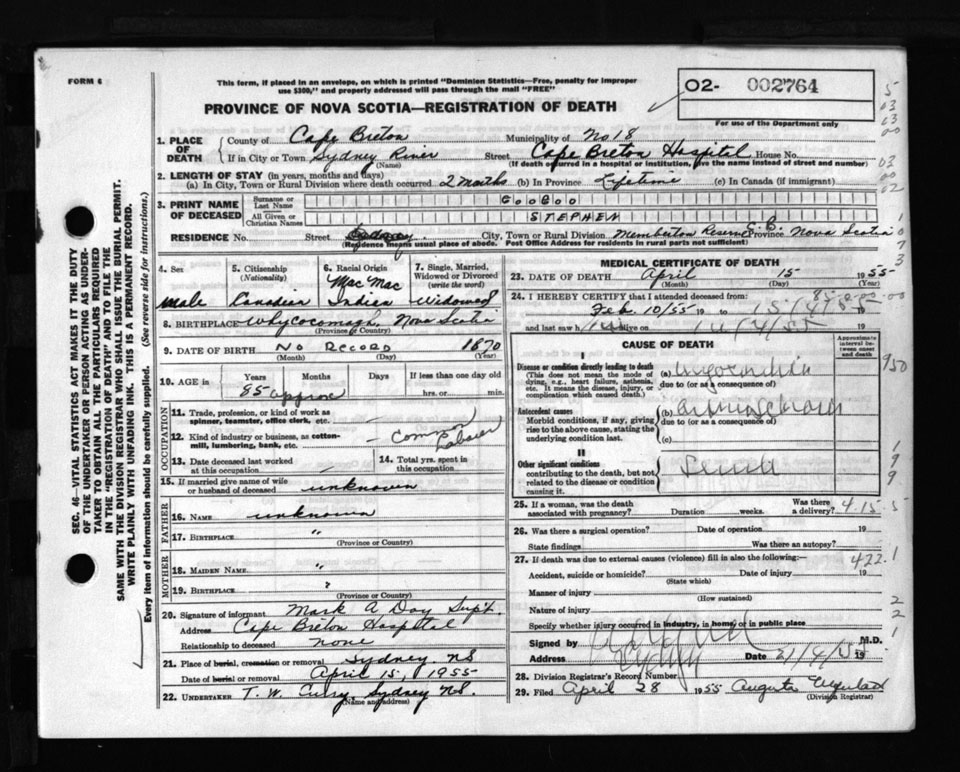 FORM 6
This form, if placed in an envelope, on which is printed "Dominion Statistics—Free, penalty for improper
use $300," and properly addressed will pass through the mail "FREE"
PROVINCE OF NOVA SCOTIA—REGISTRATION OF DEATH
O2- 002764
For use of the Department only
SEC. 46—VITAL STATISTICS ACT MAKES IT THE DUTY
OF THE UNDERTAKER OR PERSON ACTING AS UNDER-
TAKER TO OBTAIN ALL THE PARTICULARS REQUIRED
IN THE "REGISTRATION OF DEATH" AND TO FILE THE
SAME WITH THE DIVISION REGISTRAR WHO SHALL ISSUE THE BURIAL PERMIT.
WRITE PLAINLY WITH UNFADING INK. THIS IS A PERMANENT RECORD.
Every item of information should be carefully supplied. (See reverse side for instructions.)
1. PLACE OF DEATH
County of Cape Breton Municipality of No 18
If in City or Town Sydney River Street Cape Breton Hospital House No.
(Name) (If death occurred in a hospital or institution, give the name instead of street and number)
2. LENGTH OF STAY (in years, months and days)
(a) In City, Town or Rural Division where death occurred 2 Months (b) In Province Lifetime (c) In Canada (if immigrant)
3. PRINT NAME OF DECEASED
Surname or Last Name GOOGOO
All Given or Christian Names STEPHEN
RESIDENCE No. Street City, Town or Rural Division Memberton Reserve C.B. Province Nova Scotia
(Residence means usual place of abode. Post Office Address for residents in rural parts not sufficient)
4. Sex male
5. Citizenship (Nationality) Canadian
6. Racial Origin Mac Mac Indian
7. Single, Married, Widowed or Divorced (write the word) Widowed
8. BIRTHPLACE Whycocomagh, Nova Scotia
(Province or Country)
9. DATE OF BIRTH No Record 1870
(Month) (Day) (Year)
10. AGE in Years Months Days If less than one day old
85 approx hrs. or min.
OCCUPATION
11. Trade, profession, or kind of work as spinner, teamster, office clerk, etc.
12. Kind of industry or business, as cotton-mill, lumbering, bank, etc. Common Laborer
13. Date deceased last worked at this occupation
14. Total yrs. spent in this occupation
15. If married give name of wife or husband of deceased unknown
FATHER
16. NAME unknown
17. BIRTHPLACE "
(Province or Country)
MOTHER
18. MAIDEN NAME "
19. BIRTHPLACE ?
(Province or Country)
20. Signature of informant Mark A Day Supt
Address Cape Breton Hospital
Relationship to deceased none
21. Place of burial, cremation or removal Sydney NS
Date of burial or removal April 15, 1955
22. UNDERTAKER T. W. Curry, Sydney NS.
(Name and address)
MEDICAL CERTIFICATE OF DEATH
23. DATE OF DEATH April 15 1955
(Month) (Day)
24. I HEREBY CERTIFY that I attended deceased from:
Feb. 10/55 19 to 15/4/55 19
and last saw h alive on 14/4/55 19
CAUSE OF DEATH
Approximate interval between onset and death
I
Disease or condition directly leading to death
(This does not mean the mode of dying, e.g., heart failure, asthenia, etc. It means the disease, injury, or complication which caused death.)
(a)
due to (or as a consequence of)
Antecedent causes
Morbid conditions, if any, giving rise to the above cause, stating the underlying condition last.
(b)
due to (or as a consequence of)
(c)
II
Other significant conditions
contributing to the death, but not related to the disease or condition causing it.
25. If a woman, was the death associated with pregnancy? Duration weeks. Was there a delivery? 4.15.5
26. Was there a surgical operation? Date of operation 19
State findings Was there an autopsy?
27. If death was due to external causes (violence) fill in also the following:— 422.1
Accident, suicide or homicide? Date of injury 19
(State which)
Manner of injury
(How sustained)
Nature of injury
Specify whether injury occurred in industry, in home, or in public place
Signed by M.D.
Address Sydney Date 21/4/55 19
28. Division Registrar's Record Number
29. Filed April 28 1955 Augusta
(Division Registrar)